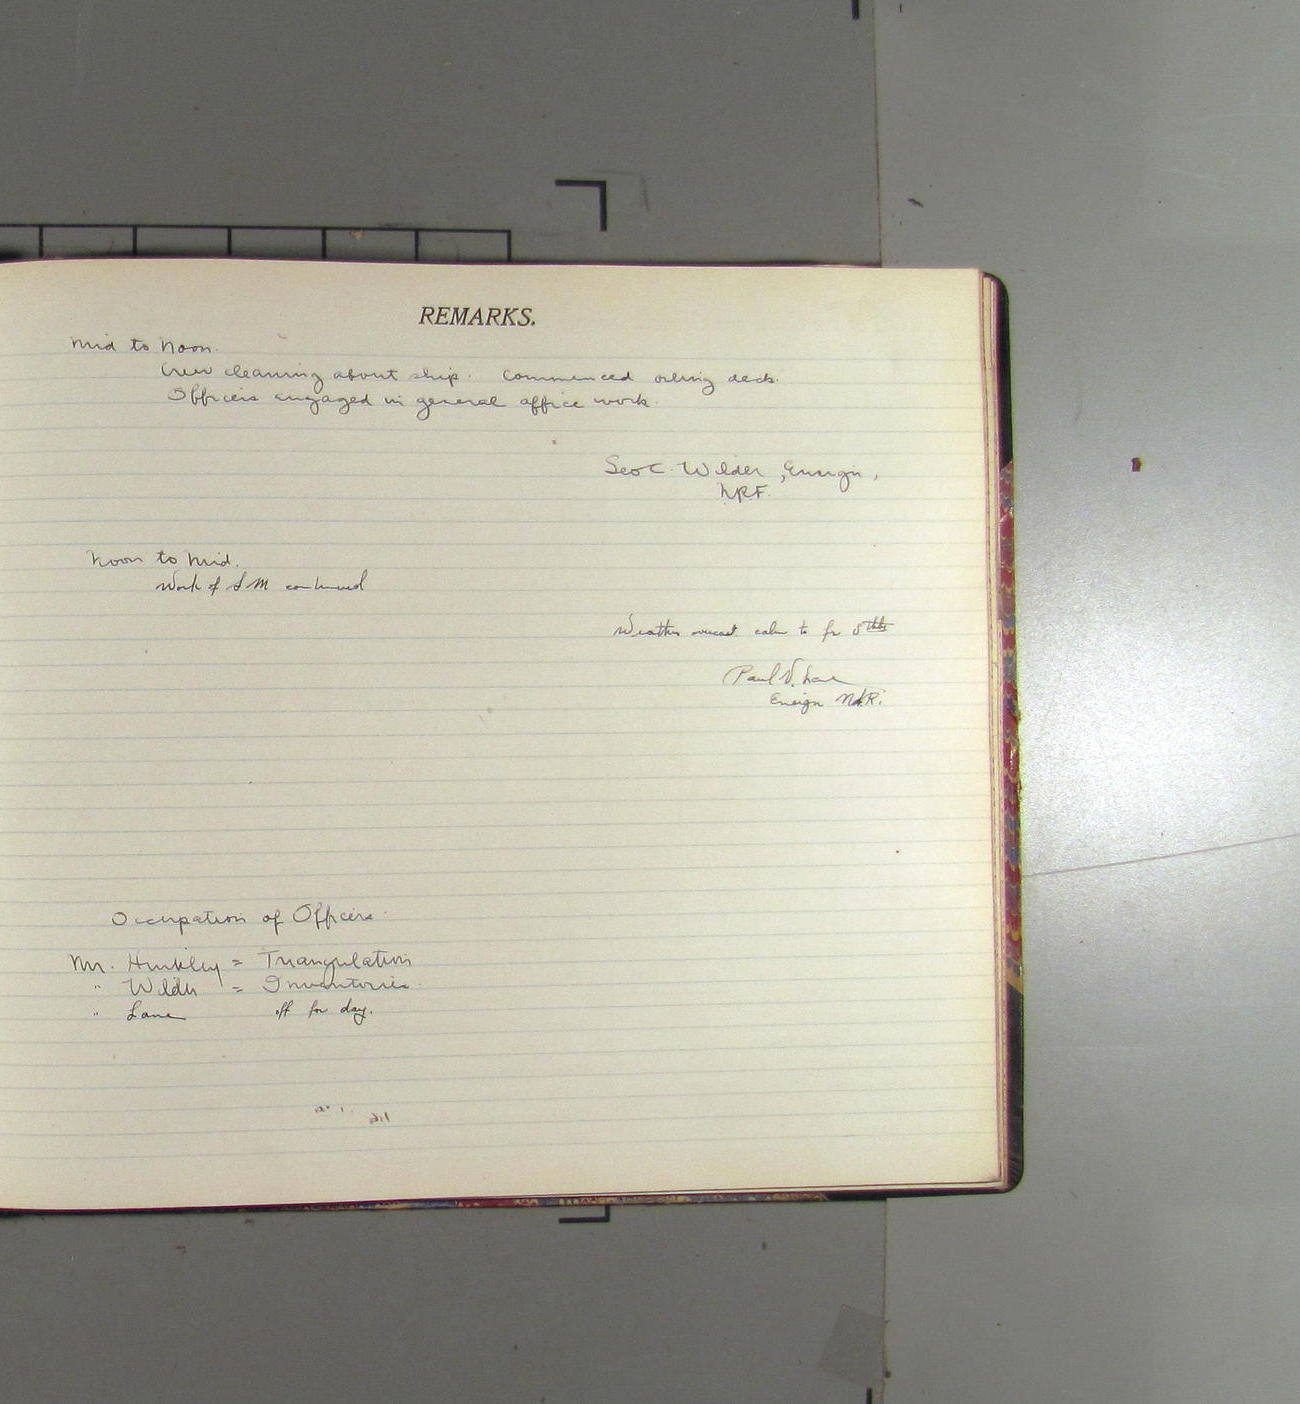 REMARKS.
Mid to Noon.
Crew cleaning about ship. Commenced oiling deck.
Officers engaged in general office work.
Geo C. Wilder, Ensign,
NRF.
Noon to Mid.
Work of A M continued
Weather overcast calm to
Paul V. Lane
Ensign
Occupation of Officers.
Mr. Hinkley = Triangulation
" Wilder = Inventories.
" Lane off for day.